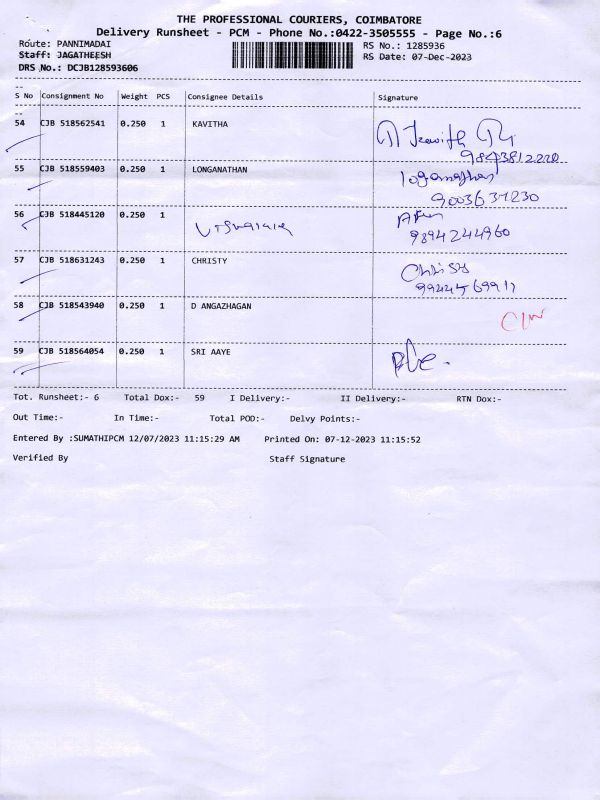 THE PROFESSIONAL COURIERS, COIMBATORE
Delivery Runsheet - PCM - Phone No.:0422-3505555 - Page No.:6
Route: PANNIMADAI RS No.: 1285936
Staff: JAGATHEESH RS Date: 07-Dec-2023
DRS No.: DCJB128593606
S No Consignment No Weight PCS Consignee Details Signature
54 CJB 518562541 0.250 1 KAVITHA
9843812220
55 CJB 518559403 0.250 1 LONGANATHAN loganathan
56 CJB 518445120 0.250 1
9894244960
57 CJB 518631243 0.250 1 CHRISTY
58 CJB 518543940 0.250 1 D ANGAZHAGAN
59 CJB 518564054 0.250 1 SRI AAYE
Tot. Runsheet:- 6 Total Dox:- 59 I Delivery:- II Delivery:- RTN Dox:-
Out Time:- In Time:- Total POD:- Delvy Points:-
Entered By :SUMATHIPCM 12/07/2023 11:15:29 AM Printed On: 07-12-2023 11:15:52
Verified By Staff Signature